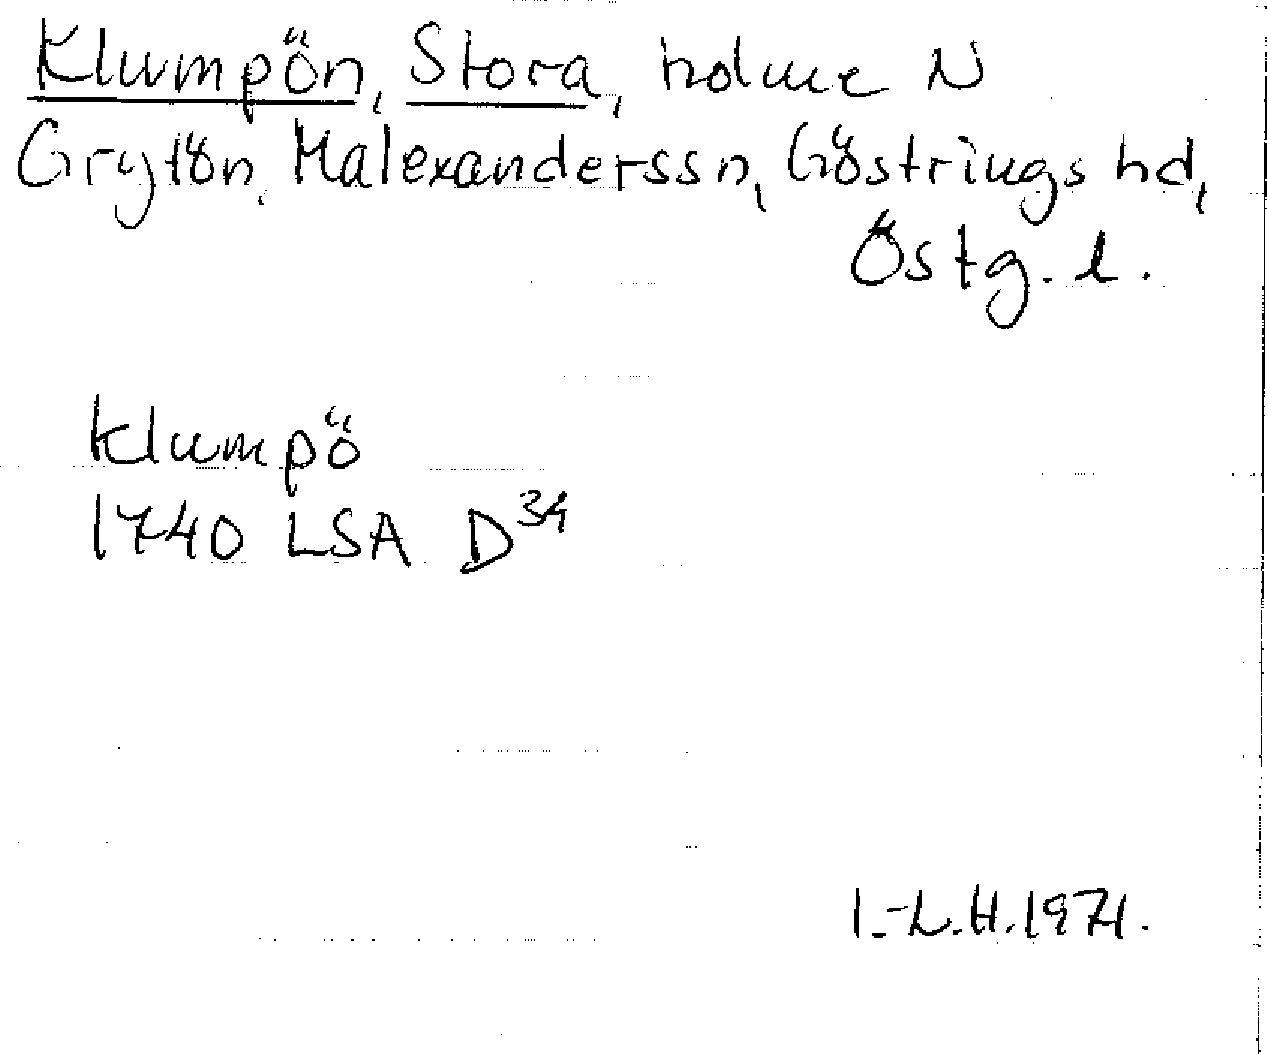 Klumpön, Stora, holme N
Grytön, Malexanderssn, Göstrings hd,
Östg. l.
Klumpö
1740 LSA D³⁴
I.-L.H. 1971.